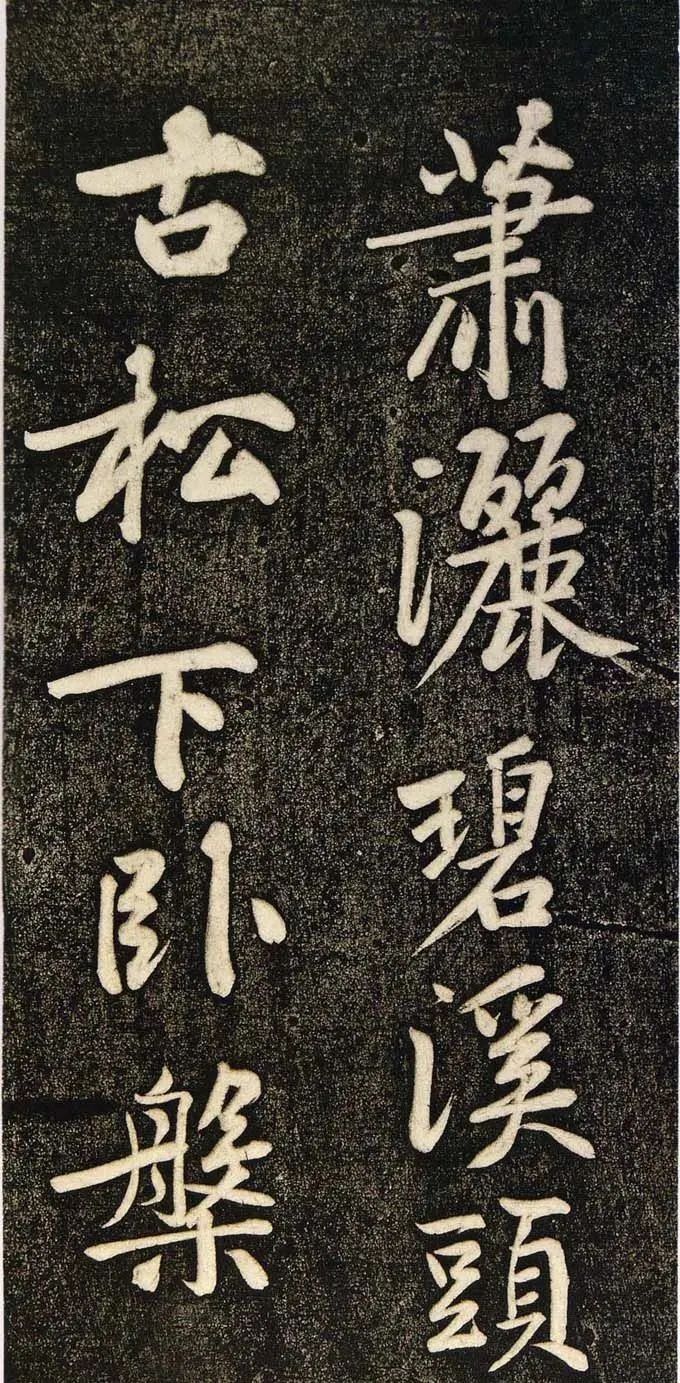 蕭灑碧溪頭
古松下臥槃